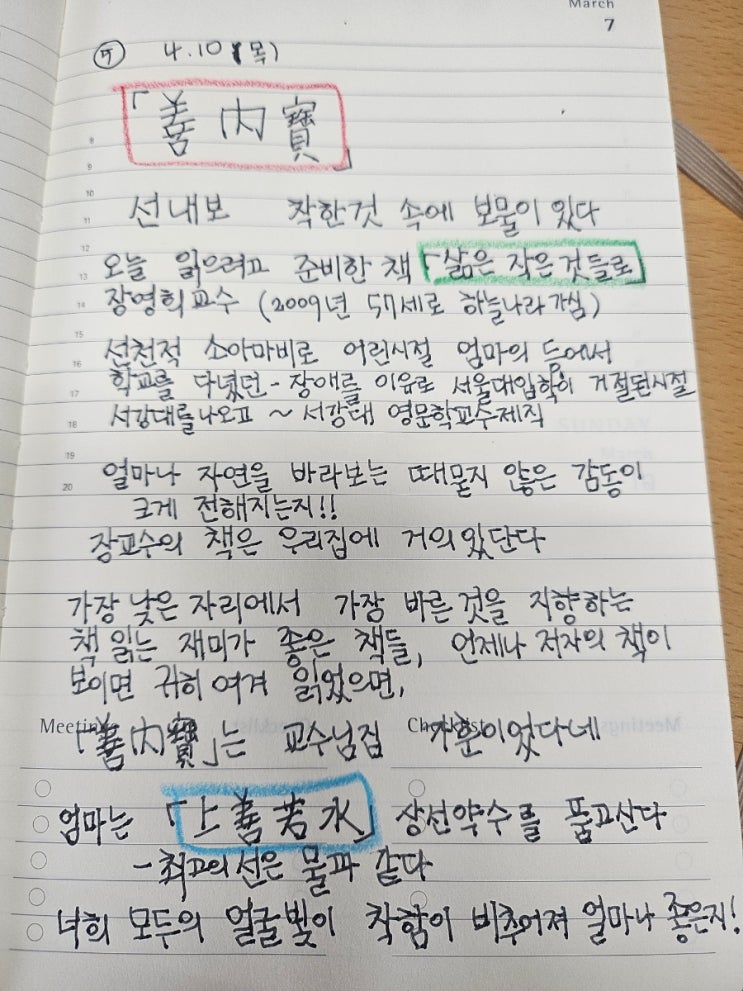 March
7
㉕ 4.10 (목)
「善內寶」
8
9
10
11 선내보 착한것 속에 보물이 있다
12
13 오늘 읽으려고 준비한 책 「삶은 작은 것들로
14 장영희교수 (2009년 57세로 하늘나라 가심)
15
16 선천적 소아마비로 어린시절 엄마의 등에서
17 학교를 다녔던 - 장애를 이유로 서울대입학이 거절된시절
18 서강대를나오고 ~ 서강대 영문학교수재직
19
20 얼마나 자연을 바라보는 때묻지 않은 감동이
크게 전해지는지!!
장교수의 책은 우리집에 거의있단다
가장 낮은 자리에서 가장 바른 것을 지향하는
책 읽는 재미가 좋은 책들, 언제나 저자의 책이
보이면 귀히 여겨 읽었으면,
Meetings Checklist
「善內寶」는 교수님집 가훈이었다네
엄마는 「上善若水」 상선약수를 품고산다
- 최고의 선은 물과 같다
너희 모두의 얼굴빛이 착함이 비추어져 얼마나 좋은지!